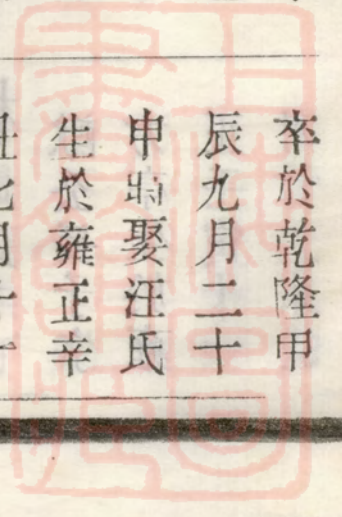 卒於乾隆甲
辰九月二十
申時娶汪氏
生於雍正辛
丑七月二十